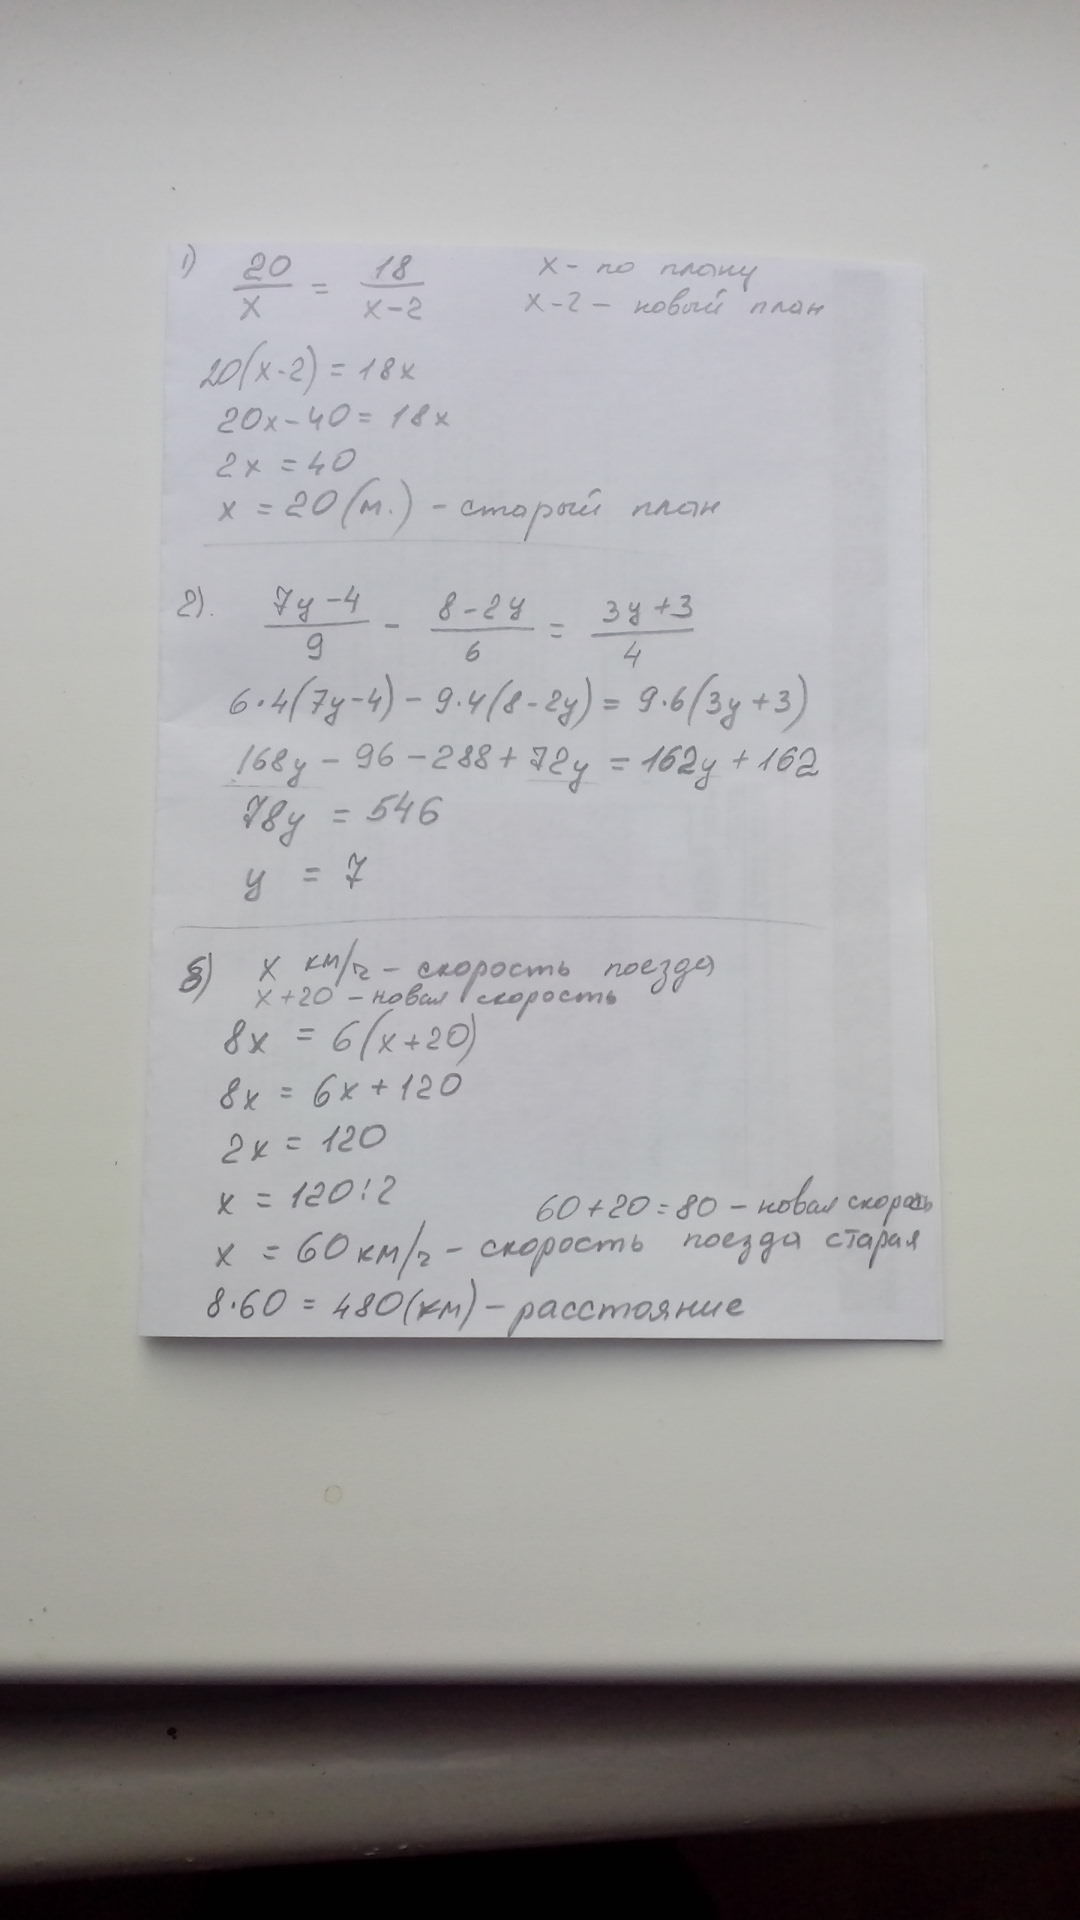 1) 20/x = 18/(x-2) x - по плану
x-2 - новый план
20(x-2) = 18x
20x - 40 = 18x
2x = 40
x = 20 (м.) - старый план
2). (7y-4)/9 - (8-2y)/6 = (3y+3)/4
6·4(7y-4) - 9·4(8-2y) = 9·6(3y+3)
168y - 96 - 288 + 72y = 162y + 162
78y = 546
y = 7
3) x км/ч - скорость поезда
x+20 - новая скорость
8x = 6(x+20)
8x = 6x + 120
2x = 120
x = 120:2
60+20=80 - новая скорость
x = 60 км/ч - скорость поезда старая
8·60 = 480(км) - расстояние